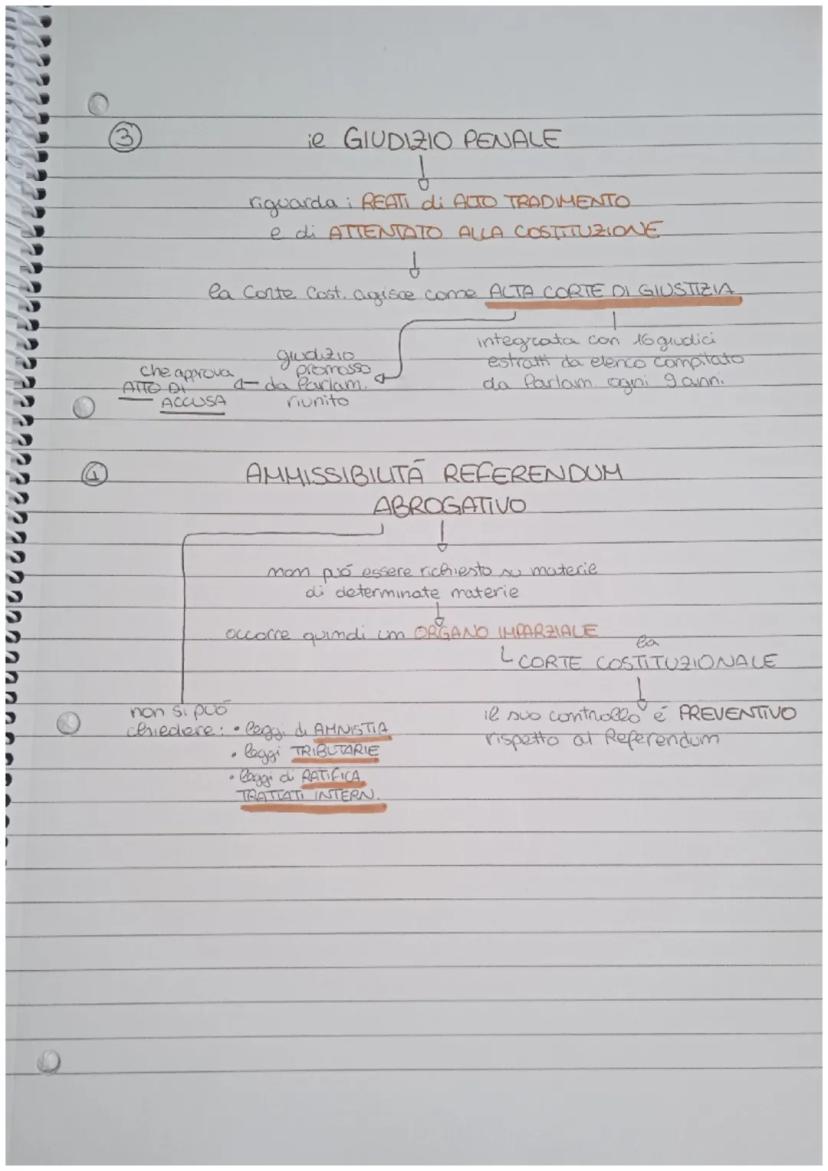 ③ il GIUDIZIO PENALE
riguarda i REATI di ALTO TRADIMENTO
e di ATTENTATO ALLA COSTITUZIONE
la Corte Cost. agisce come ALTA CORTE DI GIUSTIZIA
integrata con 16 giudici
estratti da elenco compilato
da Parlam. ogni 9 anni.
giudizio
promosso
da Parlam.
riunito
che approva
ATTO DI
ACCUSA
④ AMMISSIBILITÁ REFERENDUM
ABROGATIVO
non puó essere richiesto su materie
di determinate materie
occorre quindi un ORGANO IMPARZIALE
la
CORTE COSTITUZIONALE
il suo controllo é PREVENTIVO
rispetto al Referendum
non si puó
chiedere: • leggi di AMNISTIA
• leggi TRIBUTARIE
• leggi di RATIFICA
TRATTATI INTERN.